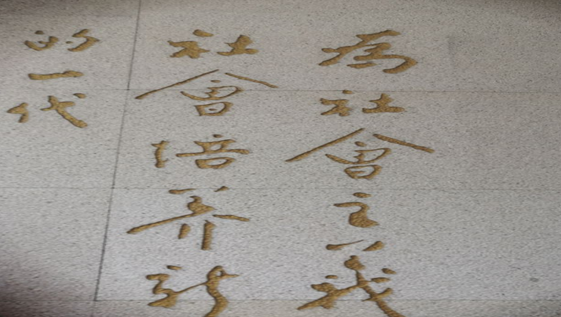 為社會主義
社會培养新
的一代